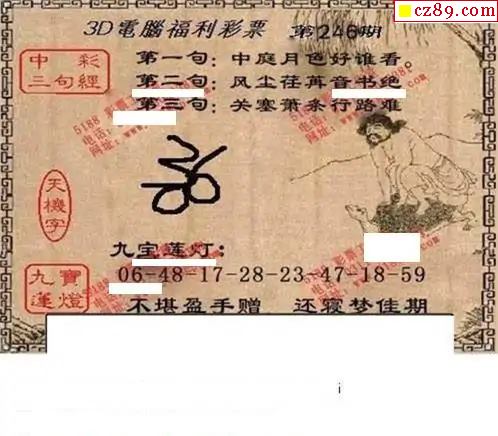 cz89.com
3D電腦福利彩票 第246期
中彩
三句經
第一句：中庭月色好谁看。
第二句：风尘荏苒音书绝
第三句：关塞萧条行路难
天機字
九宝莲灯：
九寶
蓮燈
06-48-17-28-23-47-18-59
不堪盈手赠 还寝梦佳期
i